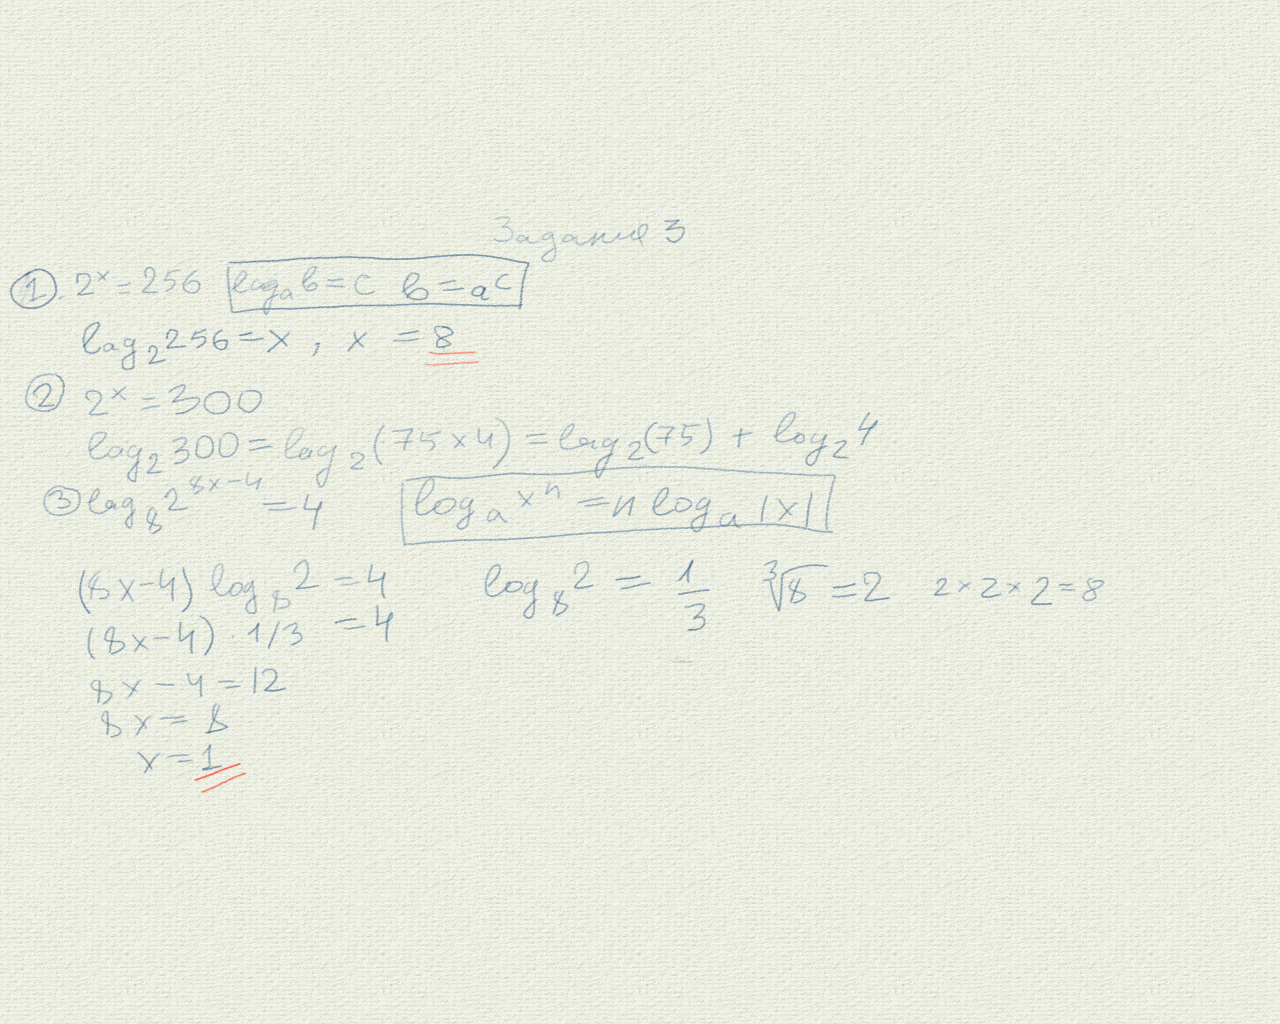 Задание 3
① 2ˣ = 256 logₐb = c b = aᶜ
log₂256 = x , x = 8
② 2ˣ = 300
log₂300 = log₂(75 × 4) = log₂(75) + log₂4
③ log₈2^(8x-4) = 4 logₐxⁿ = n logₐ|x|
(8x-4) log₈2 = 4 log₈2 = 1/3 ∛8 = 2 2×2×2=8
(8x-4) · 1/3 = 4
8x - 4 = 12
8x = 8
x = 1